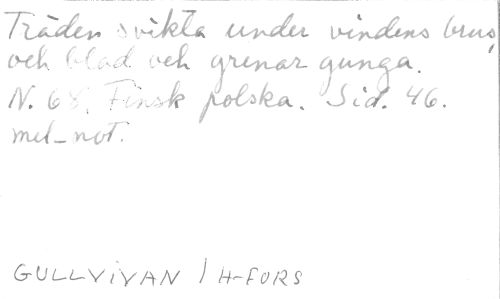 Träden svikta under vindens brus,
och blad och grenar gunga.
N. 68. Finsk polska. Sid. 46.
mel-not.
GULLVIVAN / H-FORS